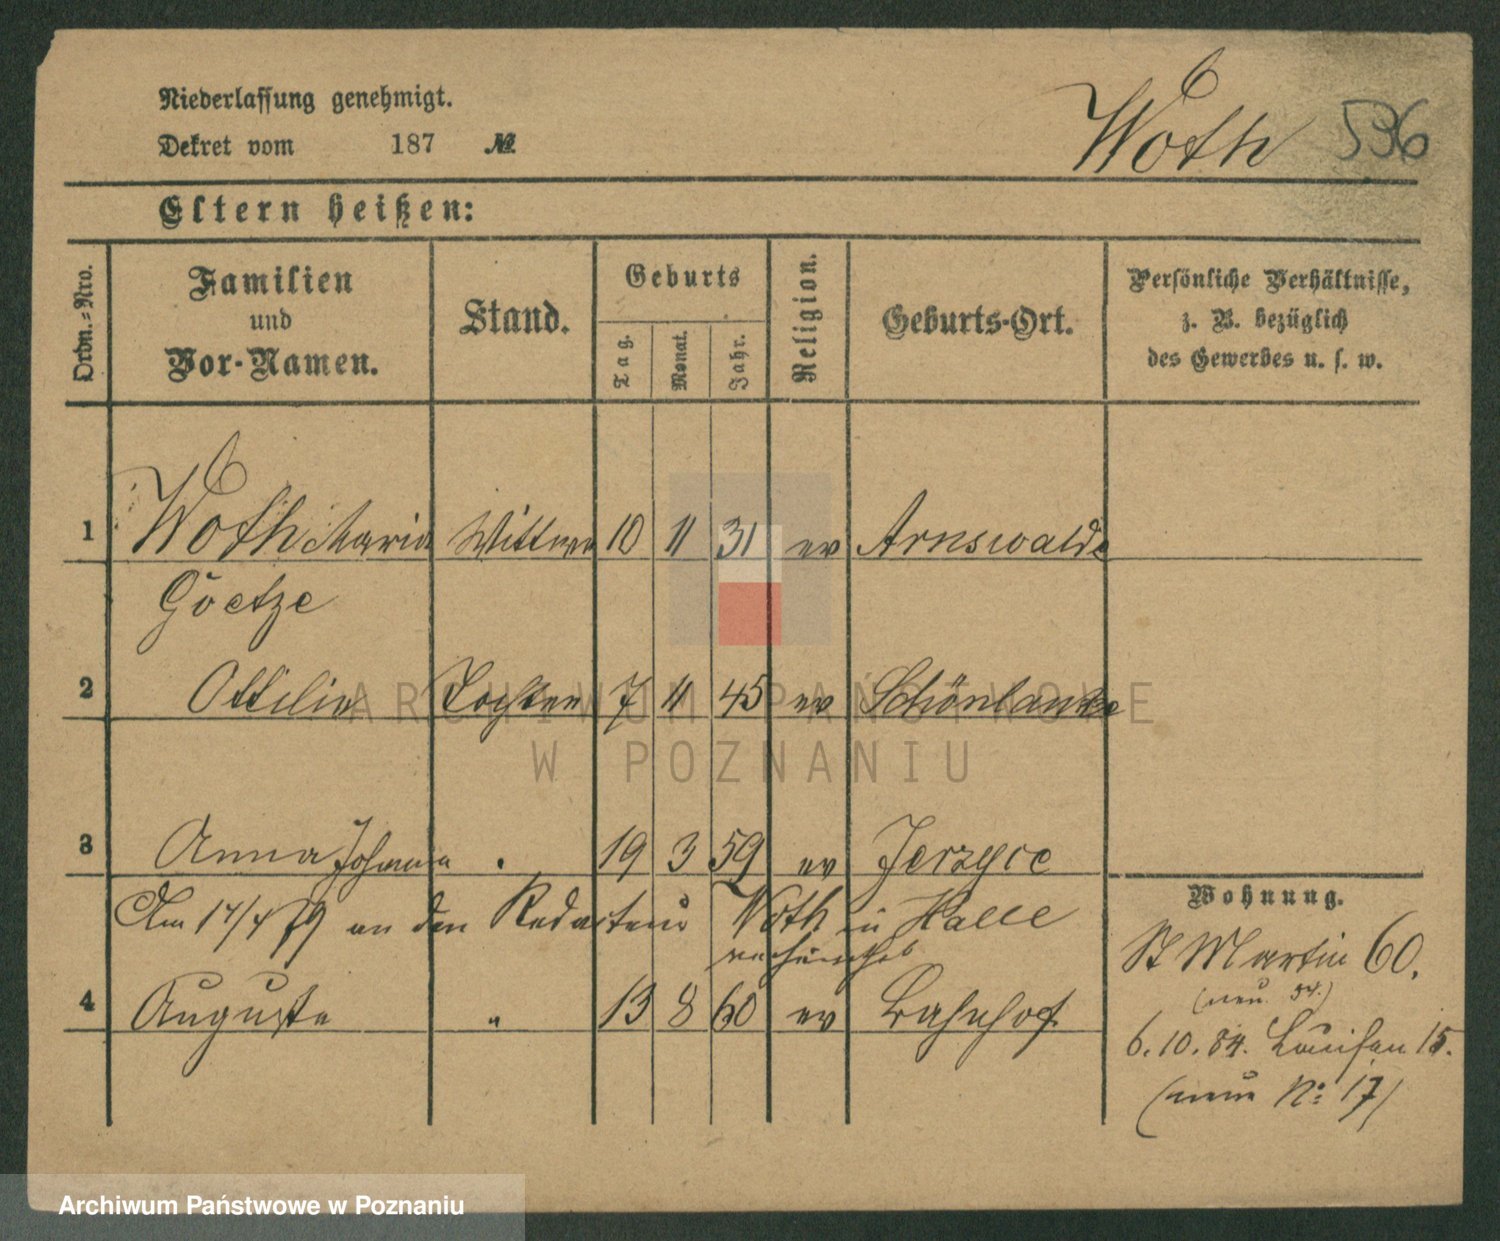 Niederlassung genehmigt.
Woth 536
Dekret vom 187 №
Eltern heißen:
Ordn.-Nro.
Familien
und
Vor-Namen.
Stand.
Geburts
Tag.
Monat.
Jahr.
Religion.
Geburts-Ort.
Persönliche Verhältnisse,
z. B. bezüglich
des Gewerbes u. s. w.
1 Woth Maria Wittwe 10 11 31 ev Arnswalde
Goetze
2 Ottilie Tochter 7 11 45 ev Schönlanke
ARCHIWUM PAŃSTWOWE
W POZNANIU
3 Anna Johanna " 19 3 59 ev Jerzyce
Am 17/4 79 an den Redacteur Woth in Halle
verheirathet
Wohnung.
St Martin 60.
(neu 54.)
4 Auguste " 13 8 60 ev Bahnhof
6.10.84. Louisen 15.
(neue No 17)
Archiwum Państwowe w Poznaniu